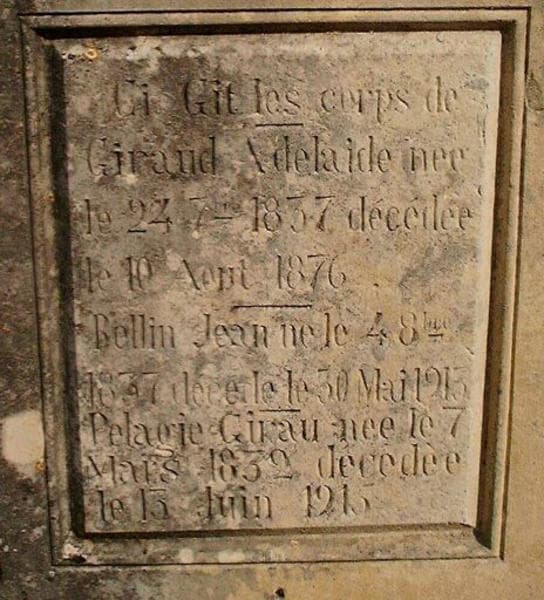 Ci Git les corps de
Giraud Adelaide nee
le 24 7bre 1837 décédée
le 10 Aout 1876
Bellin Jean ne le 4 8bre
1837 décédé le 30 Mai 1913
Pelagie Girau nee le 7
Mars 1832 décédée
le 13 Juin 1913